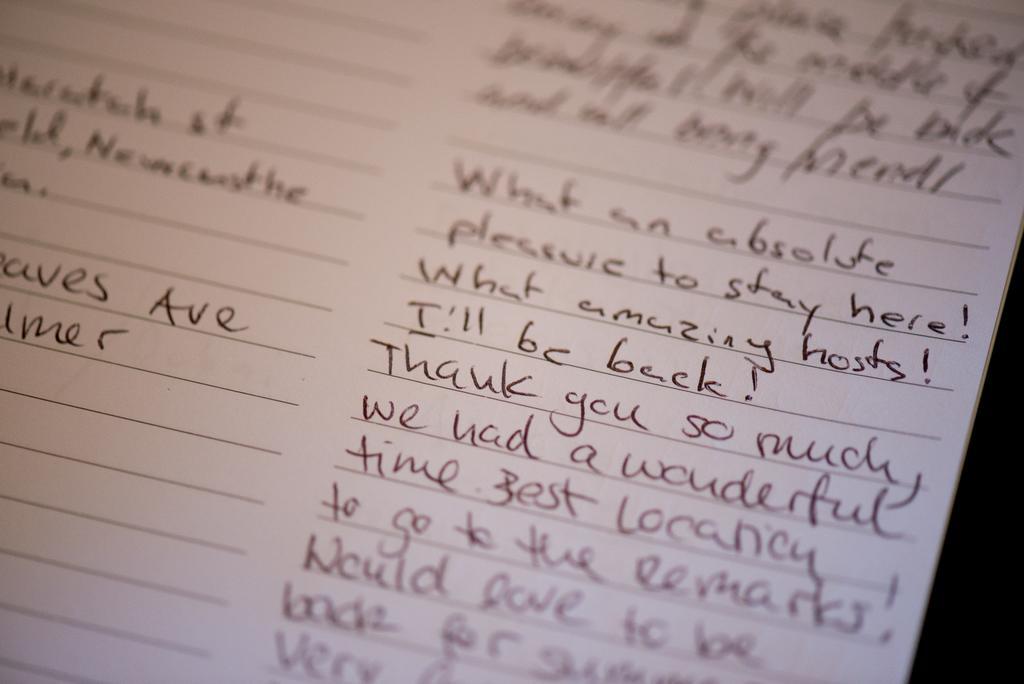 at
Newcastle
eaves Ave
lmer
please
the middle of
will be back
and all being friends
What an absolute
pleasure to stay here!
What amazing hosts!
I'll be back!
Thank you so much,
we had a wonderful
time. Best Location
to go to the remarks!
Would love to be
back for
Very